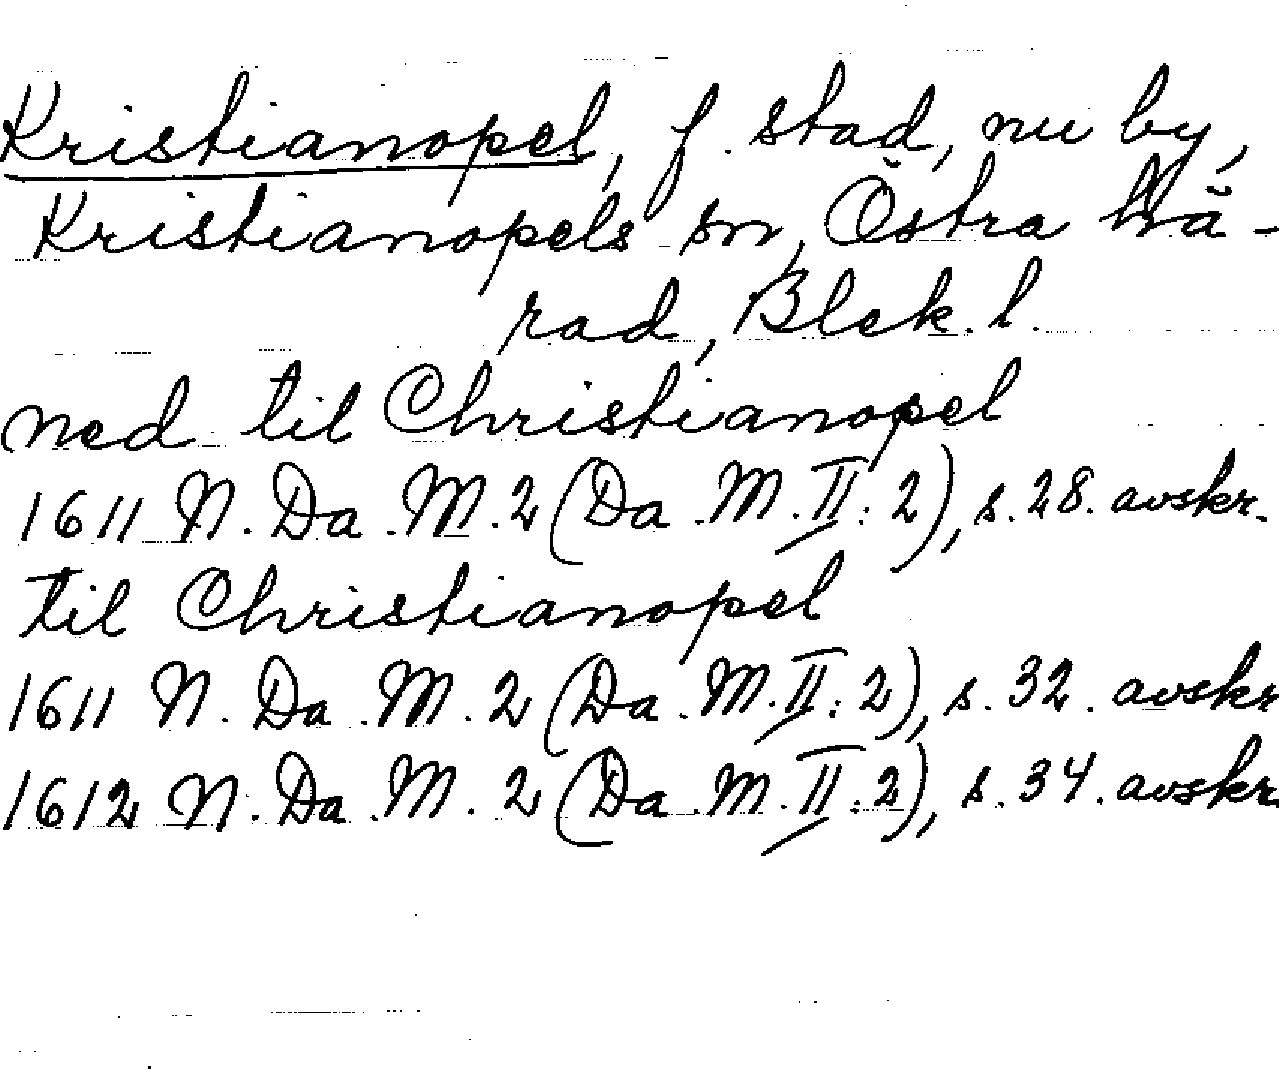 Kristianopel, f. stad, nu by,
Kristianopels sn, Östra hä-
rad, Blek. l.
ned til Christianopel
1611 N. Da. M. 2 (Da. M. II: 2), s. 28. avskr.
til Christianopel
1611 N. Da. M. 2 (Da. M. II: 2), s. 32. avskr
1612 N. Da. M. 2 (Da. M. II: 2), s. 34. avskr.